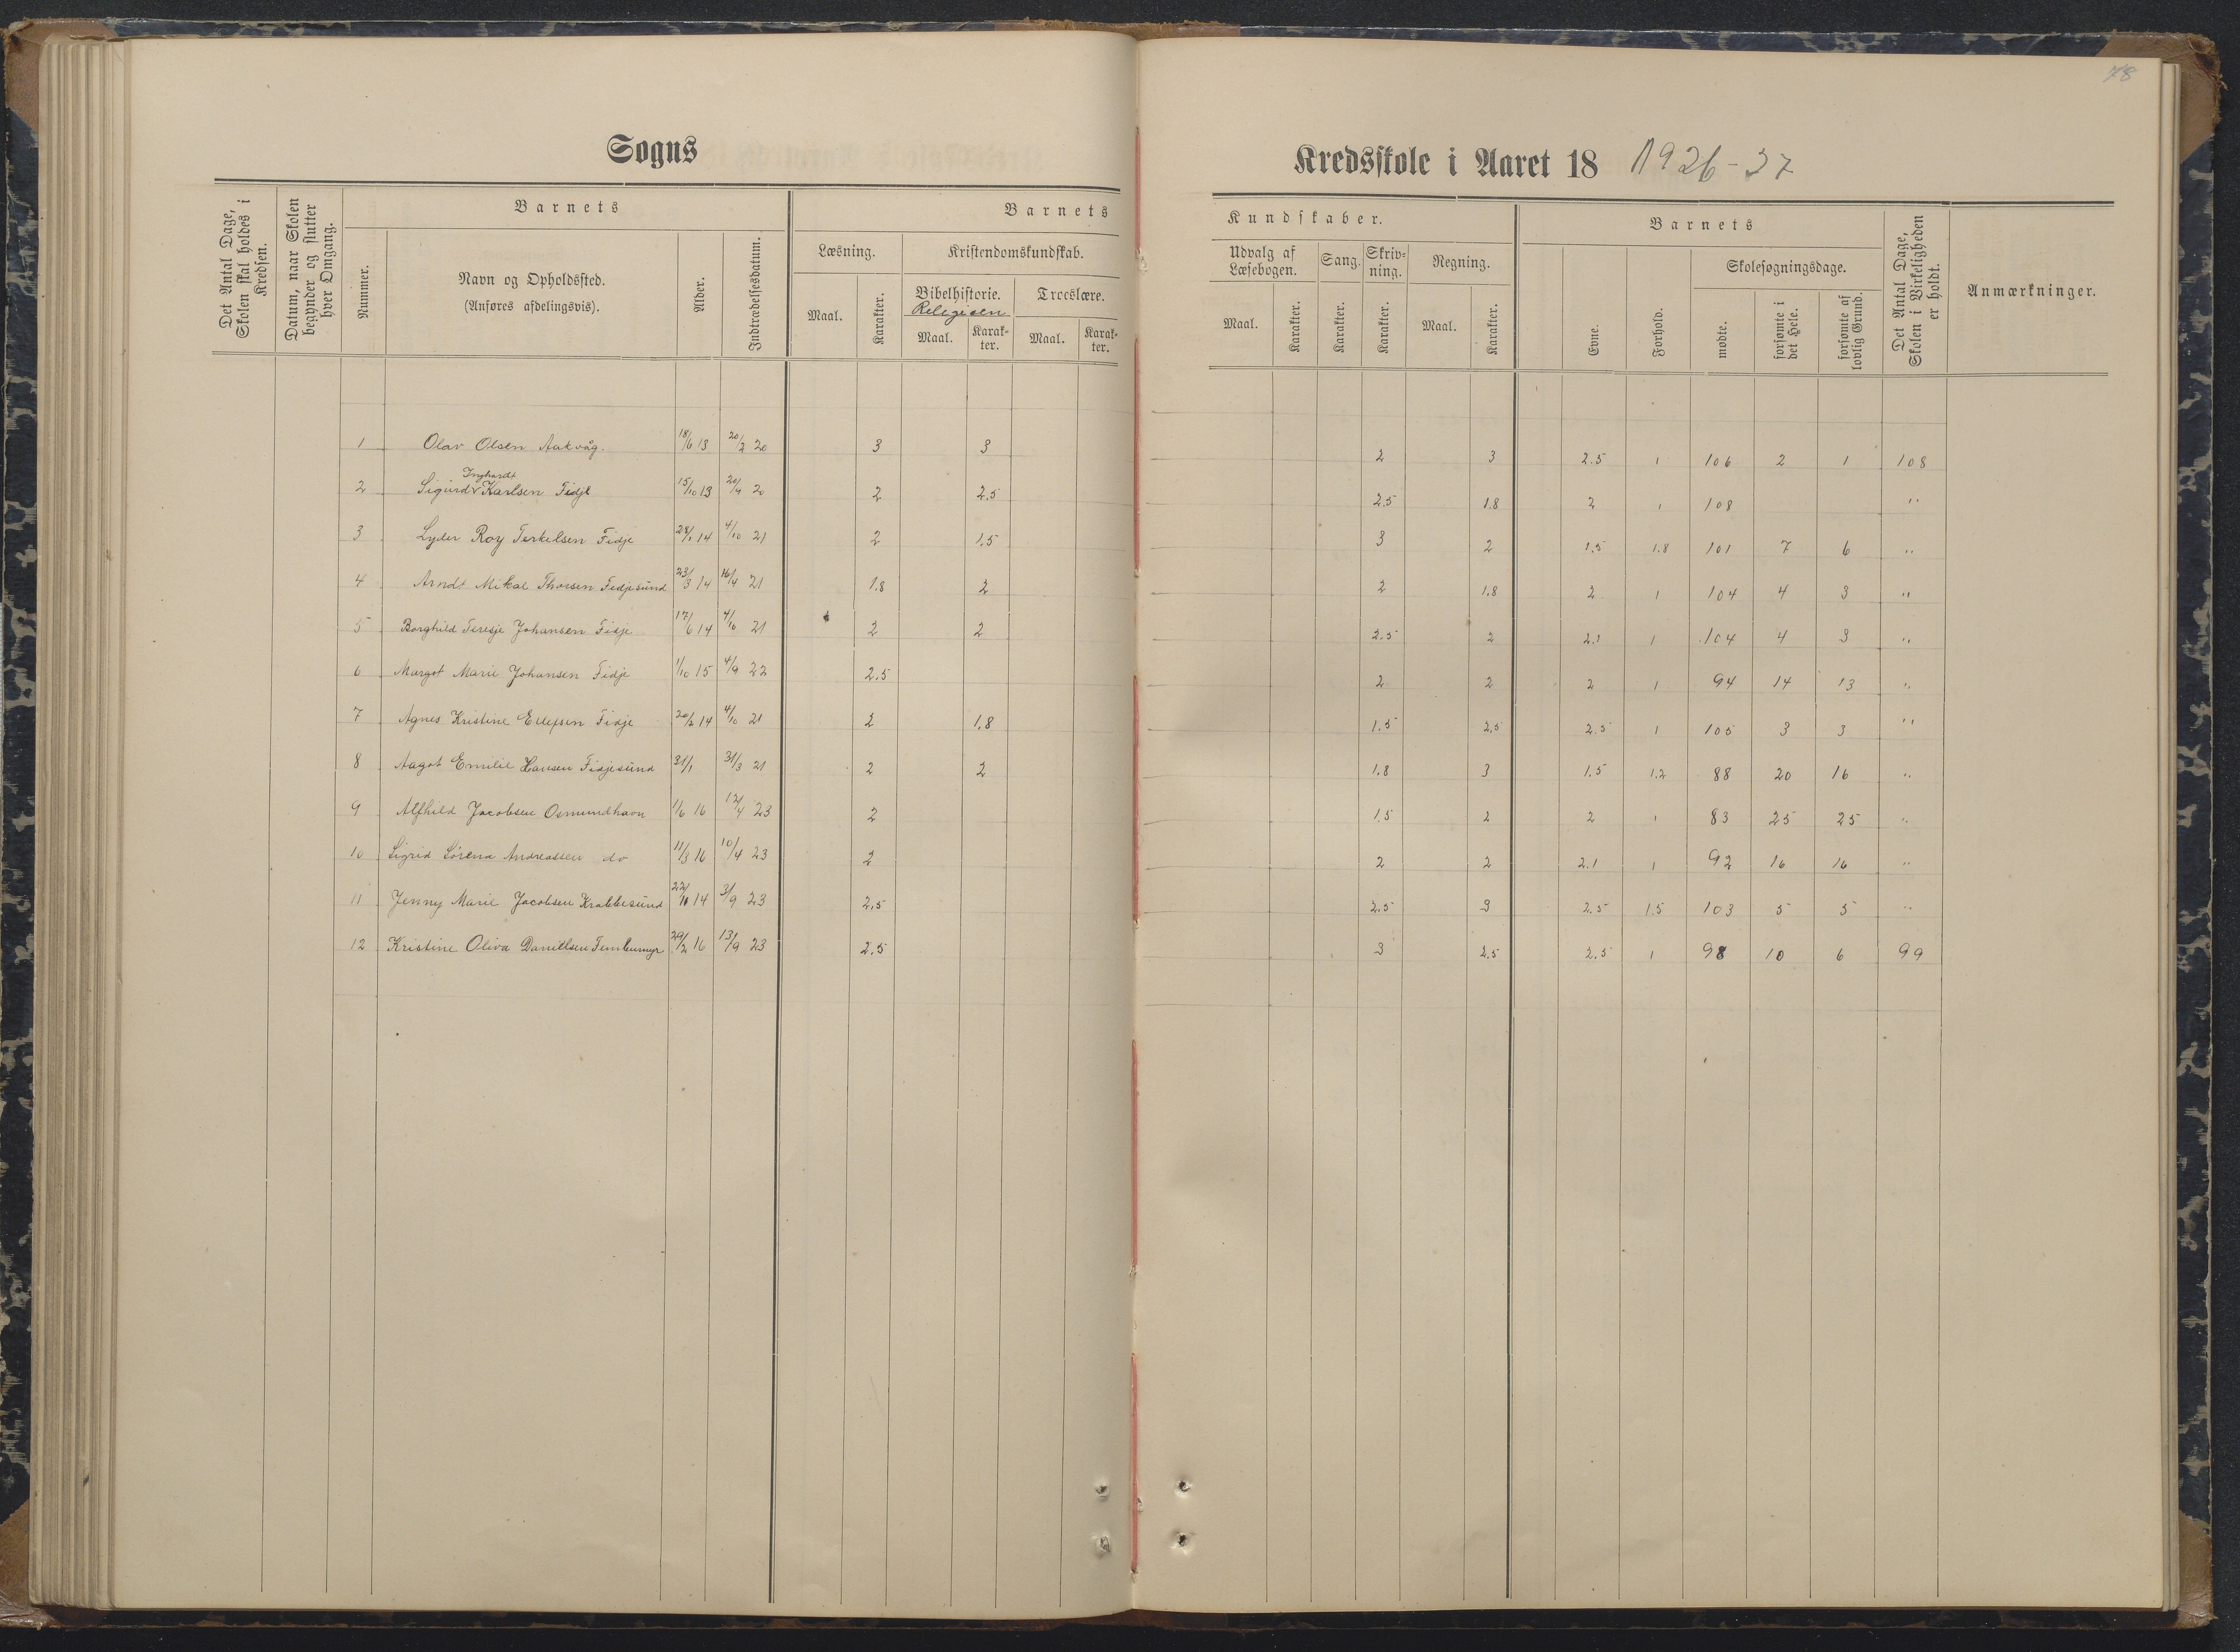 48
Sogns
Kredsskole i Aaret 18 1926-37
Det Antal Dage, Skolen skal holdes i Kredsen.
Datum, naar Skolen begynder og slutter hver Omgang.
Barnets
Nummer.
Navn og Opholdssted.
(Anføres afdelingsvis).
Alder.
Indtrædelsesdatum.
Barnets
Læsning.
Maal.
Karakter.
Kristendomskundskab.
Bibelhistorie.
Religioen
Maal.
Karakter.
Troeslære.
Maal.
Karakter.
Kundskaber.
Udvalg af Læsebogen.
Maal.
Karakter.
Sang.
Karakter.
Skrivning.
Karakter.
Regning.
Maal.
Karakter.
Barnets
Evne.
Forhold.
Skolesøgningsdage.
mødte.
forsømte i det Hele.
forsømte af lovlig Grund.
Det Antal Dage, Skolen i Virkeligheden er holdt.
Anmærkninger.
1 Olav Olsen Aakvåg. 18/6 13 20/2 20 3 3 2 3 2.5 1 106 2 1 108
Inghardt
2 Sigurd Karlsen Fidje 15/10 13 20/4 20 2 2.5 2.5 1.8 2 1 108 "
3 Lyder Roy Terkelsen Fidje 28/1 14 4/10 21 2 1.5 3 2 1.5 1.8 101 7 6 "
4 Arndt Mikal Thorsen Fidjesund 23/3 14 16/4 21 1.8 2 2 1.8 2 1 104 4 3 "
5 Borghild Teresje Johansen Fidje 17/6 14 4/10 21 2 2 2.5 2 2.1 1 104 4 3 "
6 Margot Marie Johansen Fidje 1/10 15 4/9 22 2.5 2 2 2 1 94 14 13 "
7 Agnes Kristine Ellefsen Fidje 20/2 14 4/10 21 2 1.8 1.5 2.5 2.5 1 105 3 3 "
8 Aagot Emilie Hansen Fidjesund 31/1 31/3 21 2 2 1.8 3 1.5 1.2 88 20 16 "
9 Alfhild Jacobsen Osmundhavn 1/6 16 12/4 23 2 1.5 2 2 1 83 25 25 "
10 Sigrid Sørena Andreassen do 11/3 16 10/4 23 2 2 2 2.1 1 92 16 16 "
11 Jenny Marie Jacobsen Krabbesund 22/10 14 3/9 23 2.5 2.5 3 2.5 1.5 103 5 5 "
12 Kristine Oliva Daniellsen 29/2 16 13/9 23 2.5 3 2.5 2.5 1 98 10 6 99